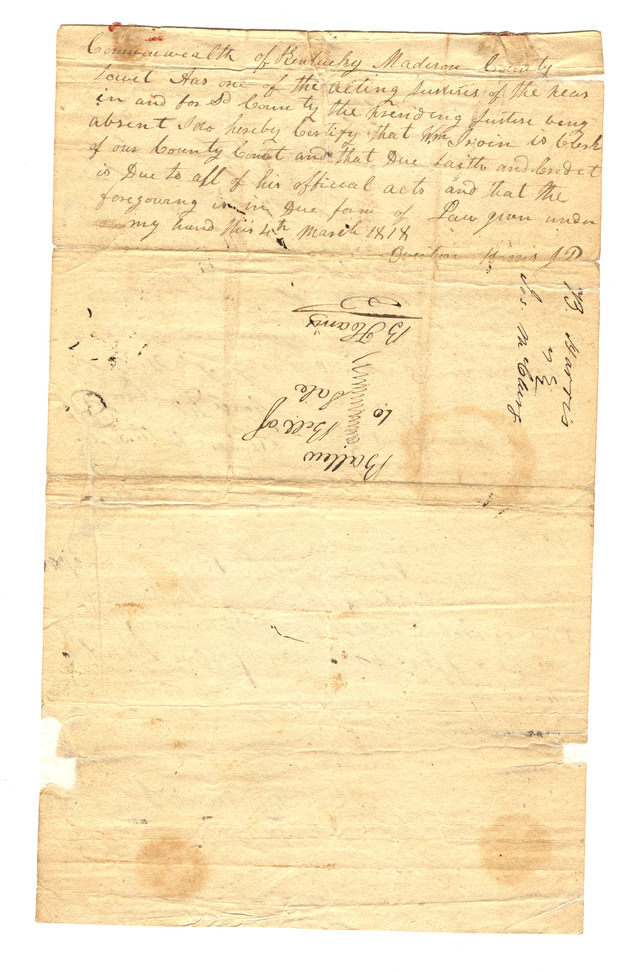 Commonwealth of Kentucky Madison County
I as one of the acting Justices of the peas
in and for Sd County the presiding Justice being
absent I do hereby Certify that Wm Irvin is Clerk
of our County Court and that Due faith and Credet
is Due to all of his official acts and that the
foregowing is in Due form of Law given under
my hand this 4th March 1818
Overton Harris J P
B. Harris
vs
Jos. McClurg
Ballew
to Bill of
Sale
B Harris